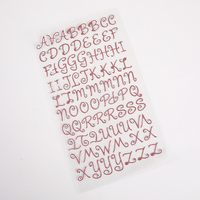 AAABBBCC
CDDDEEEF
FGGGHHH
IIIJJJKKKL
LLMMMNN
NOOOPPP
QQQRRRSS
VVWWWXX
XYYYZZZ